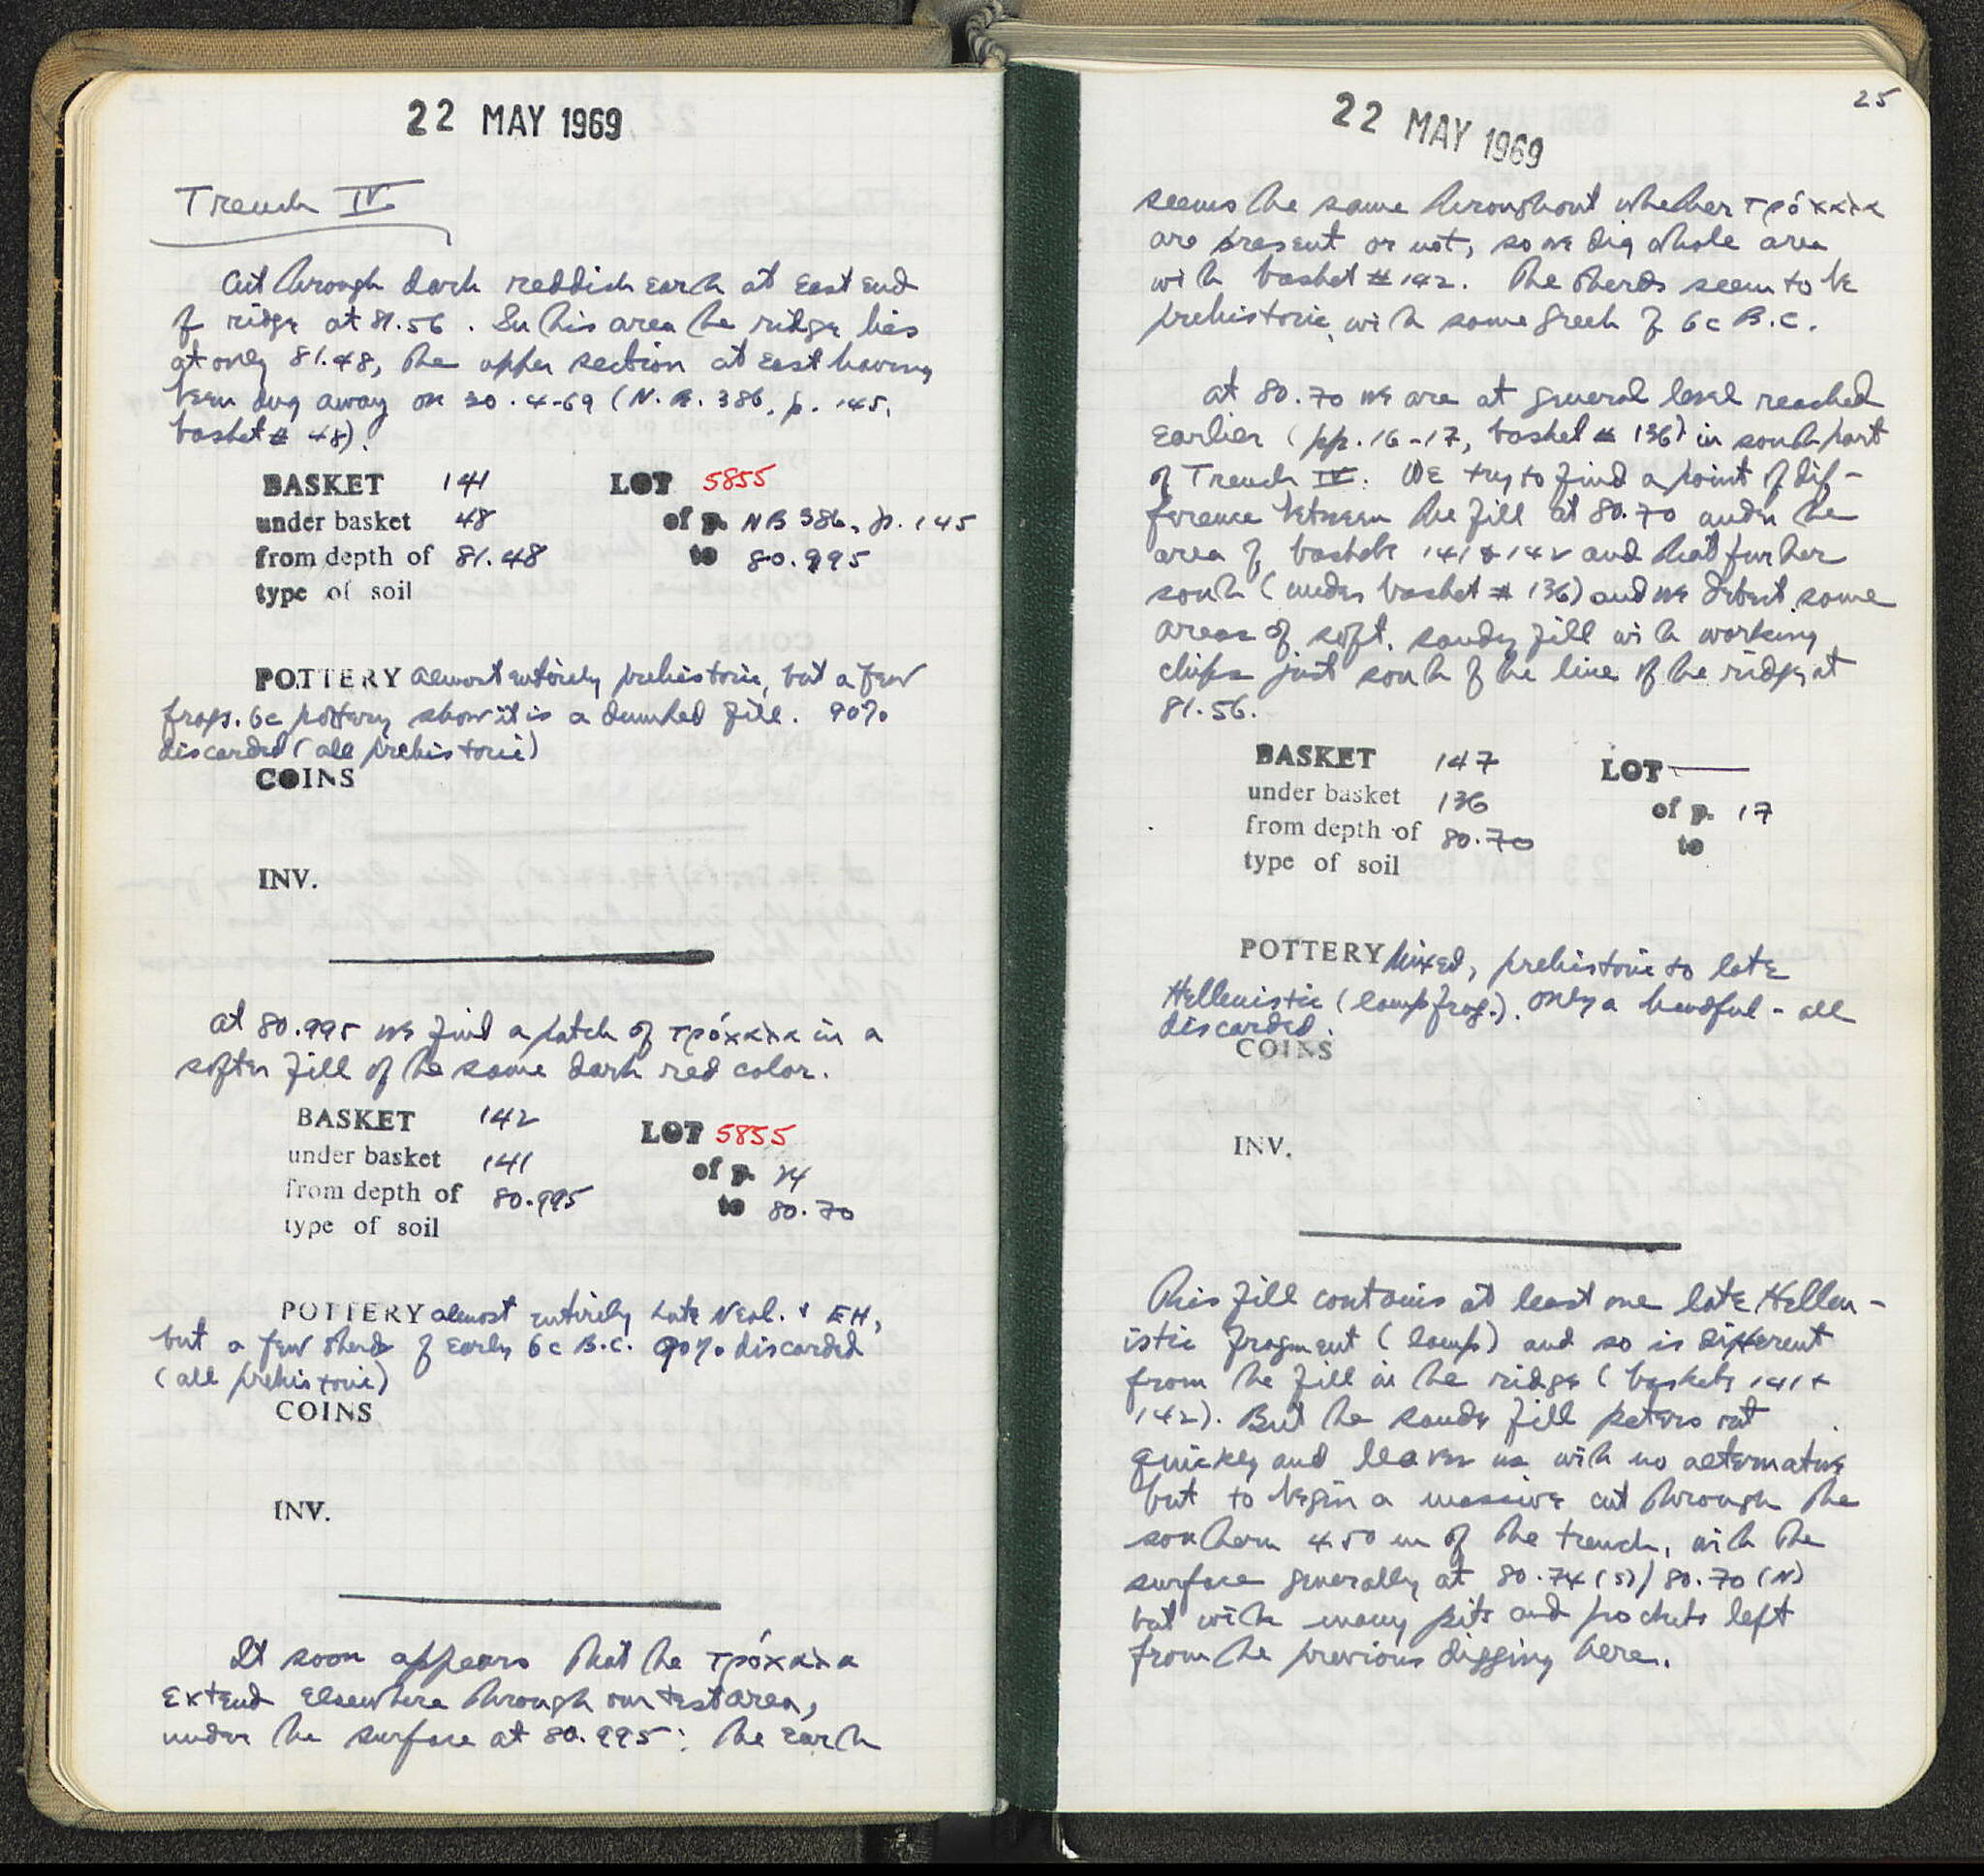 22 MAY 1969
Trench IV
Cut through dark reddish earth at East End
of ridge at 81.56. In this area the ridge lies
at only 81.48, the upper section at East having
been dug away on 30.4.69 (N.B. 386, p. 145,
basket # 48).
BASKET 141 LOT 5855
under basket 48 of p. NB 386, p. 145
from depth of 81.48 to 80.995
type of soil
POTTERY almost entirely prehistoric, but a few
frags. 6c pottery show it is a dumped fill. 90%
discarded (all prehistoric)
COINS
INV.
At 80.995 we find a patch of τρόχαλα in a
softer fill of the same dark red color.
BASKET 142 LOT 5855
under basket 141 of p. 24
from depth of 80.995 to 80.70
type of soil
POTTERY almost entirely Late Neol. & EH,
but a few sherds of Early 6c B.C. 90% discarded
(all prehistoric)
COINS
INV.
It soon appears that the τρόχαλα
extend elsewhere through our test area,
under the surface at 80.995: the earth
25
22 MAY 1969
seems the same throughout whether τρόχαλα
are present or not, so we dig whole area
with basket # 142. The sherds seem to be
prehistoric, with some Greek of 6c B.C.
At 80.70 we are at general level reached
earlier (pp. 16-17, basket # 136) in south part
of Trench IV. We try to find a point of dif-
ference between the fill at 80.70 under the
area of baskets 141 & 142 and that further
south (under basket # 136) and we detect some
areas of soft, sandy fill with working
chips just south of the line of the ridge at
81.56.
BASKET 147 LOT —
under basket 136 of p. 17
from depth of 80.70 to
type of soil
POTTERY Mixed, prehistoric to late
Hellenistic (lamp frag.). Only a handful - all
discarded.
COINS
INV.
This fill contains at least one late Hellen-
istic fragment (lamp) and so is different
from the fill in the ridge (baskets 141 +
142). But the sandy fill peters out
quickly and leaves us with no alternative
but to begin a massive cut through the
southern 4.50 m of the trench, with the
surface generally at 80.74 (S) / 80.70 (N)
but with many pits and pockets left
from the previous digging here.